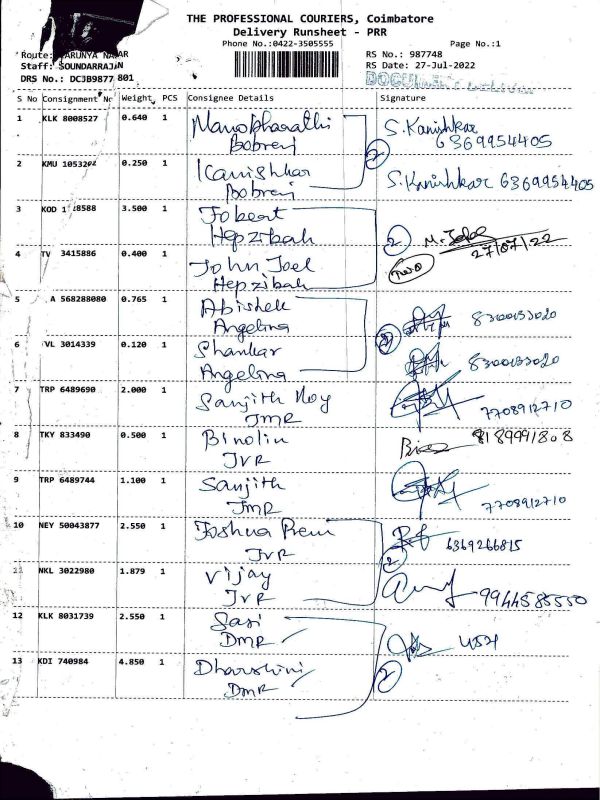 THE PROFESSIONAL COURIERS, Coimbatore
Delivery Runsheet - PRR
Phone No.:0422-3505555 Page No.:1
Route: ARUNYA NAGAR RS No.: 987748
Staff: SOUNDARRAJAN RS Date: 27-Jul-2022
DRS No.: DCJB9877 801 DOCUMENT
S No Consignment No Weight. PCS Consignee Details Signature
1 KLK 8008527 0.640 1 Manobharathi S.Kanishkar
Bobrenj 6369954405
2
2 KMU 1053202 0.250 1 Kanishkar S.Kanishkar 6369954405
Bobrenj
3 KOD 1 8588 3.500 1
Hepzibah 2 27/07/22
4 TV 3415886 0.400 1 John Joel Two
Hepzibah
5 A 568288080 0.765 1 Abishek 8300153020
Angelina
6 VL 3014339 0.120 1 Shankar 8300153020
Angelina
7 TRP 6489690 2.000 1 Sanjith Roy 7708912710
JMR
8 TKY 833490 0.500 1 Binolin 8189991808
JVR
9 TRP 6489744 1.100 1 Sanjith 7708912710
JMR
10 NEY 50043877 2.550 1 Joshua Prem 6369266815
JVR 2
11 NKL 3022980 1.879 1 Vijay 9944585550
JVR
12 KLK 8031739 2.550 1 Sasi
DMR
13 KDI 740984 4.850 1 Dharshini 2
DMR